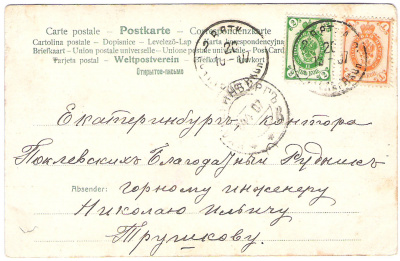 Carte postale – Postkarte – Correspondenzkarte
Cartolina postale - Dopisnice - Levelező-Lap - Karta korespondencyjna
Briefkaart - Union postale universelle - Unione postale universale -
Tarjeta postal - Weltpostverein -
Открытое письмо
22
10 07
Екатеринбургъ, контора
Поклевскихъ Благодатный Рудникъ
Absender: горному инженеру
Николаю Ильичу
Трушкову.